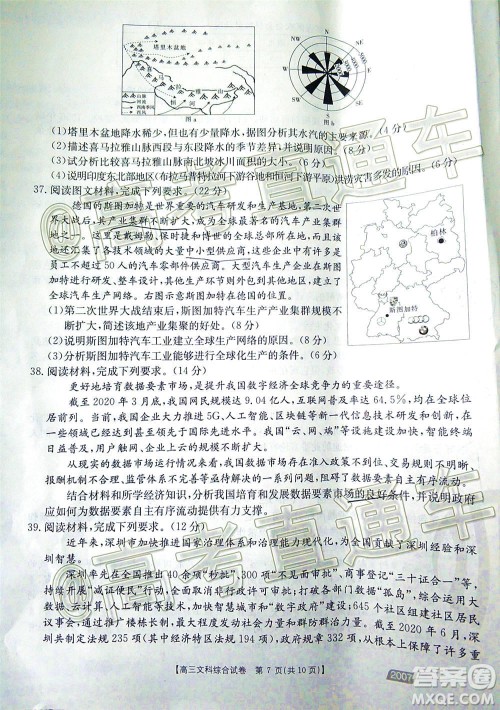 塔里木盆地
恒
河
山脉
河流
西南季风
西风
图a
N
NW
NE
W
E
SW
SE
S
图b
(1)塔里木盆地降水稀少,但也有少量降水,据图分析其水汽的主要来源。(4分)
(2)描述喜马拉雅山脉西段与东段年降水的季节差异,并说明原因。
(3)试分析比较喜马拉雅山脉南北坡冰川面积的大小。(6分)
(4)说明印度东北部地区(布拉马普特拉河下游谷地和恒河下游平原)洪涝灾害多发的原因。(6分)
37. 阅读图文材料,完成下列要求。(22分)
德国的斯图加特是世界重要的汽车研发和生产基地。第二次世
界大战后,其产业集群不断扩大,成为全球最著名的汽车产业集群
地之一。这里是戴姆勒、保时捷和博世的全球总部所在地,而且聚
集了各技术领域的大量中小型供应商,这些企业中有许多是
员工不超过50人的汽车零部件供应商。大型汽车生产企业在斯图
加特进行研发,其他生产环节则外包到其他地区或国家,建立起了
全球汽车生产网络。右图示意斯图加特在德国的位置。
(1)第二次世界大战结束后,斯图加特汽车生产产业集群规模不
断扩大,简述该地产业集聚的好处。(8分)
(2)说明斯图加特汽车工业建立全球生产网络的原因。(8分)
(3)分析斯图加特汽车工业能够进行全球化生产的条件。(6分)
柏林
斯图加特
38. 阅读材料,完成下列要求。(14分)
更好地培育数据要素市场,是提升我国数字经济全球竞争力的重要途径。
截至2020年3月底,我国网民规模达9.04亿人,互联网普及率达64.5%,均在全球位
居前列。当前,我国在大数据、5G、人工智能、区块链等新一代信息技术研发和创新,在一
些关键领域甚至领先于国际先进水平。我国“云、网、端”等新型设施加快建设,智能终端
日益普及,用户触网、企业上云的规模不断扩大。
从现实的数据市场运行情况来看,我国数据市场尚存在准入政策不到位、交易机制不
完善、市场竞争不规范、共享开放不足、安全隐患较大等问题,不利于数据要素自主有序流动。
结合材料和所学经济知识,分析我国培育和发展数据要素市场的良好条件,并说明政府
应如何为数据要素自主有序流动提供有力支撑。
39. 阅读材料,完成下列要求。(12分)
近年来,深圳市加快推进国家治理体系和治理能力现代化,为全国贡献了深圳经验和
深圳智慧。
深圳率先在全国推出40余项“秒批”,300项“不见面审批”、商事登记“三十证合一”等,
持续开展“减证便民”行动,全面取消非行政许可审批事项,打破政府部门数据“孤岛”,综合运用大
数据、云计算、人工智能等技术,加快智慧城市和“数字政府”建设;645个社区组建社区居民
议事会,通过多种形式问计于民,最大程度激发社会治理活力;截至2020年4月,深
圳共制定法规235项(其中经济特区法规194项),政府规章332项,从多个领域为国
【高三文科综合试卷 第7页(共10页)】
2007
高考直通车
答案圈
MXQE.COM